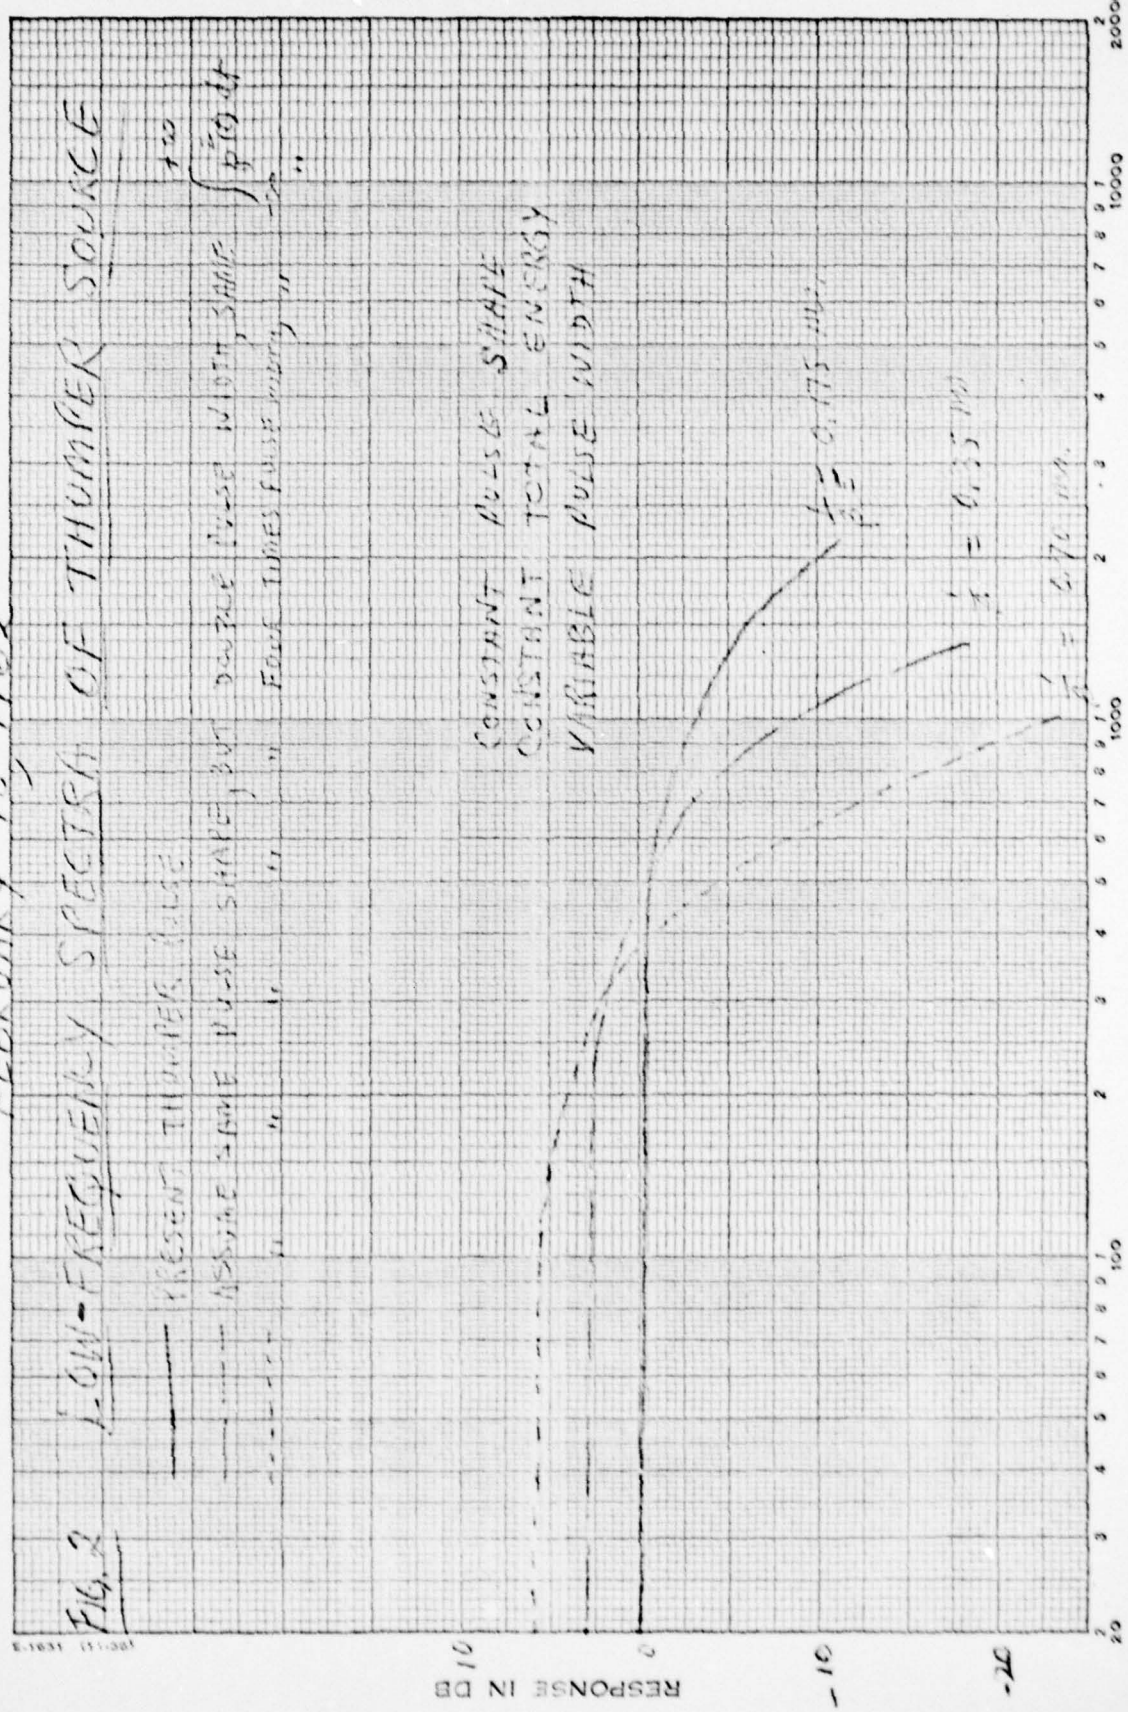 FEBRUARY
FIG. 2 LOW-FREQUENCY SPECTRA OF THUMPER SOURCE
PRESENT THUMPER PULSE
ASSUME SAME PULSE SHAPE, BUT DOUBLE PULSE WIDTH, SAME ∫ p²(t) dt
+∞
-∞
" " " " " FOUR TIMES PULSE WIDTH, " "
CONSTANT PULSE SHAPE
CONSTANT TOTAL ENERGY
VARIABLE PULSE WIDTH
= 0.175 ms.
= 0.35 ms
= 0.70 ms.
RESPONSE IN DB
10
0
-10
-20
2 3 4 5 6 7 8 9 1 2 3 4 5 6 7 8 9 1 2 3 4 5 6 7 8 9 1 2
20 100 1000 10000 2000
E-1631